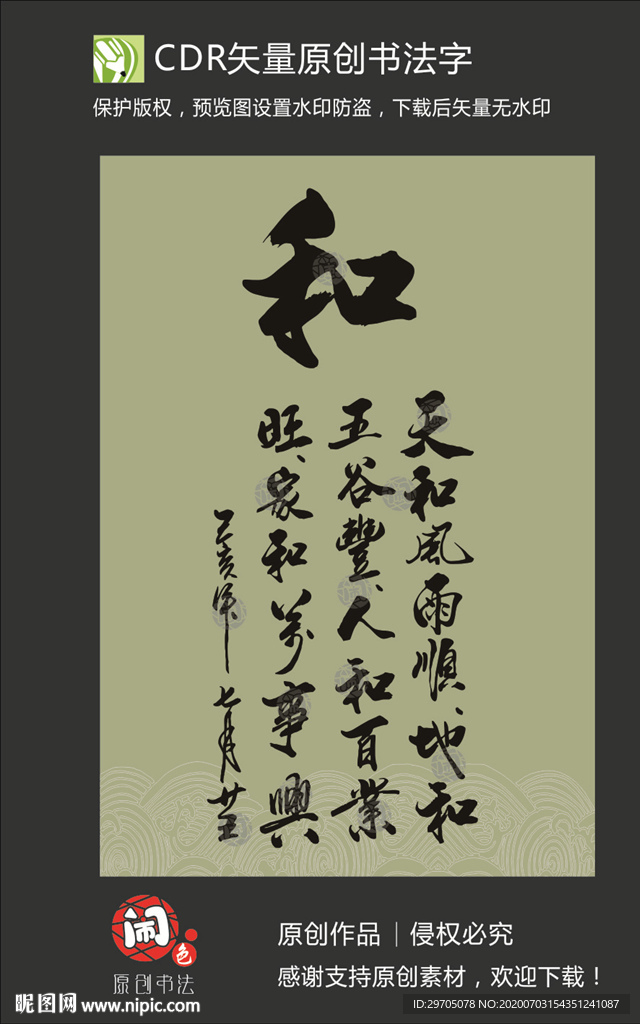 CDR矢量原创书法字
保护版权，预览图设置水印防盗，下载后矢量无水印
和
天和風雨順、地和
五谷豐、人和百業
旺、家和萬事興
七月
闹
色
原创书法
原创作品｜侵权必究
感谢支持原创素材，欢迎下载！
昵图网 www.nipic.com
ID:29705078 NO:20200703154351241087